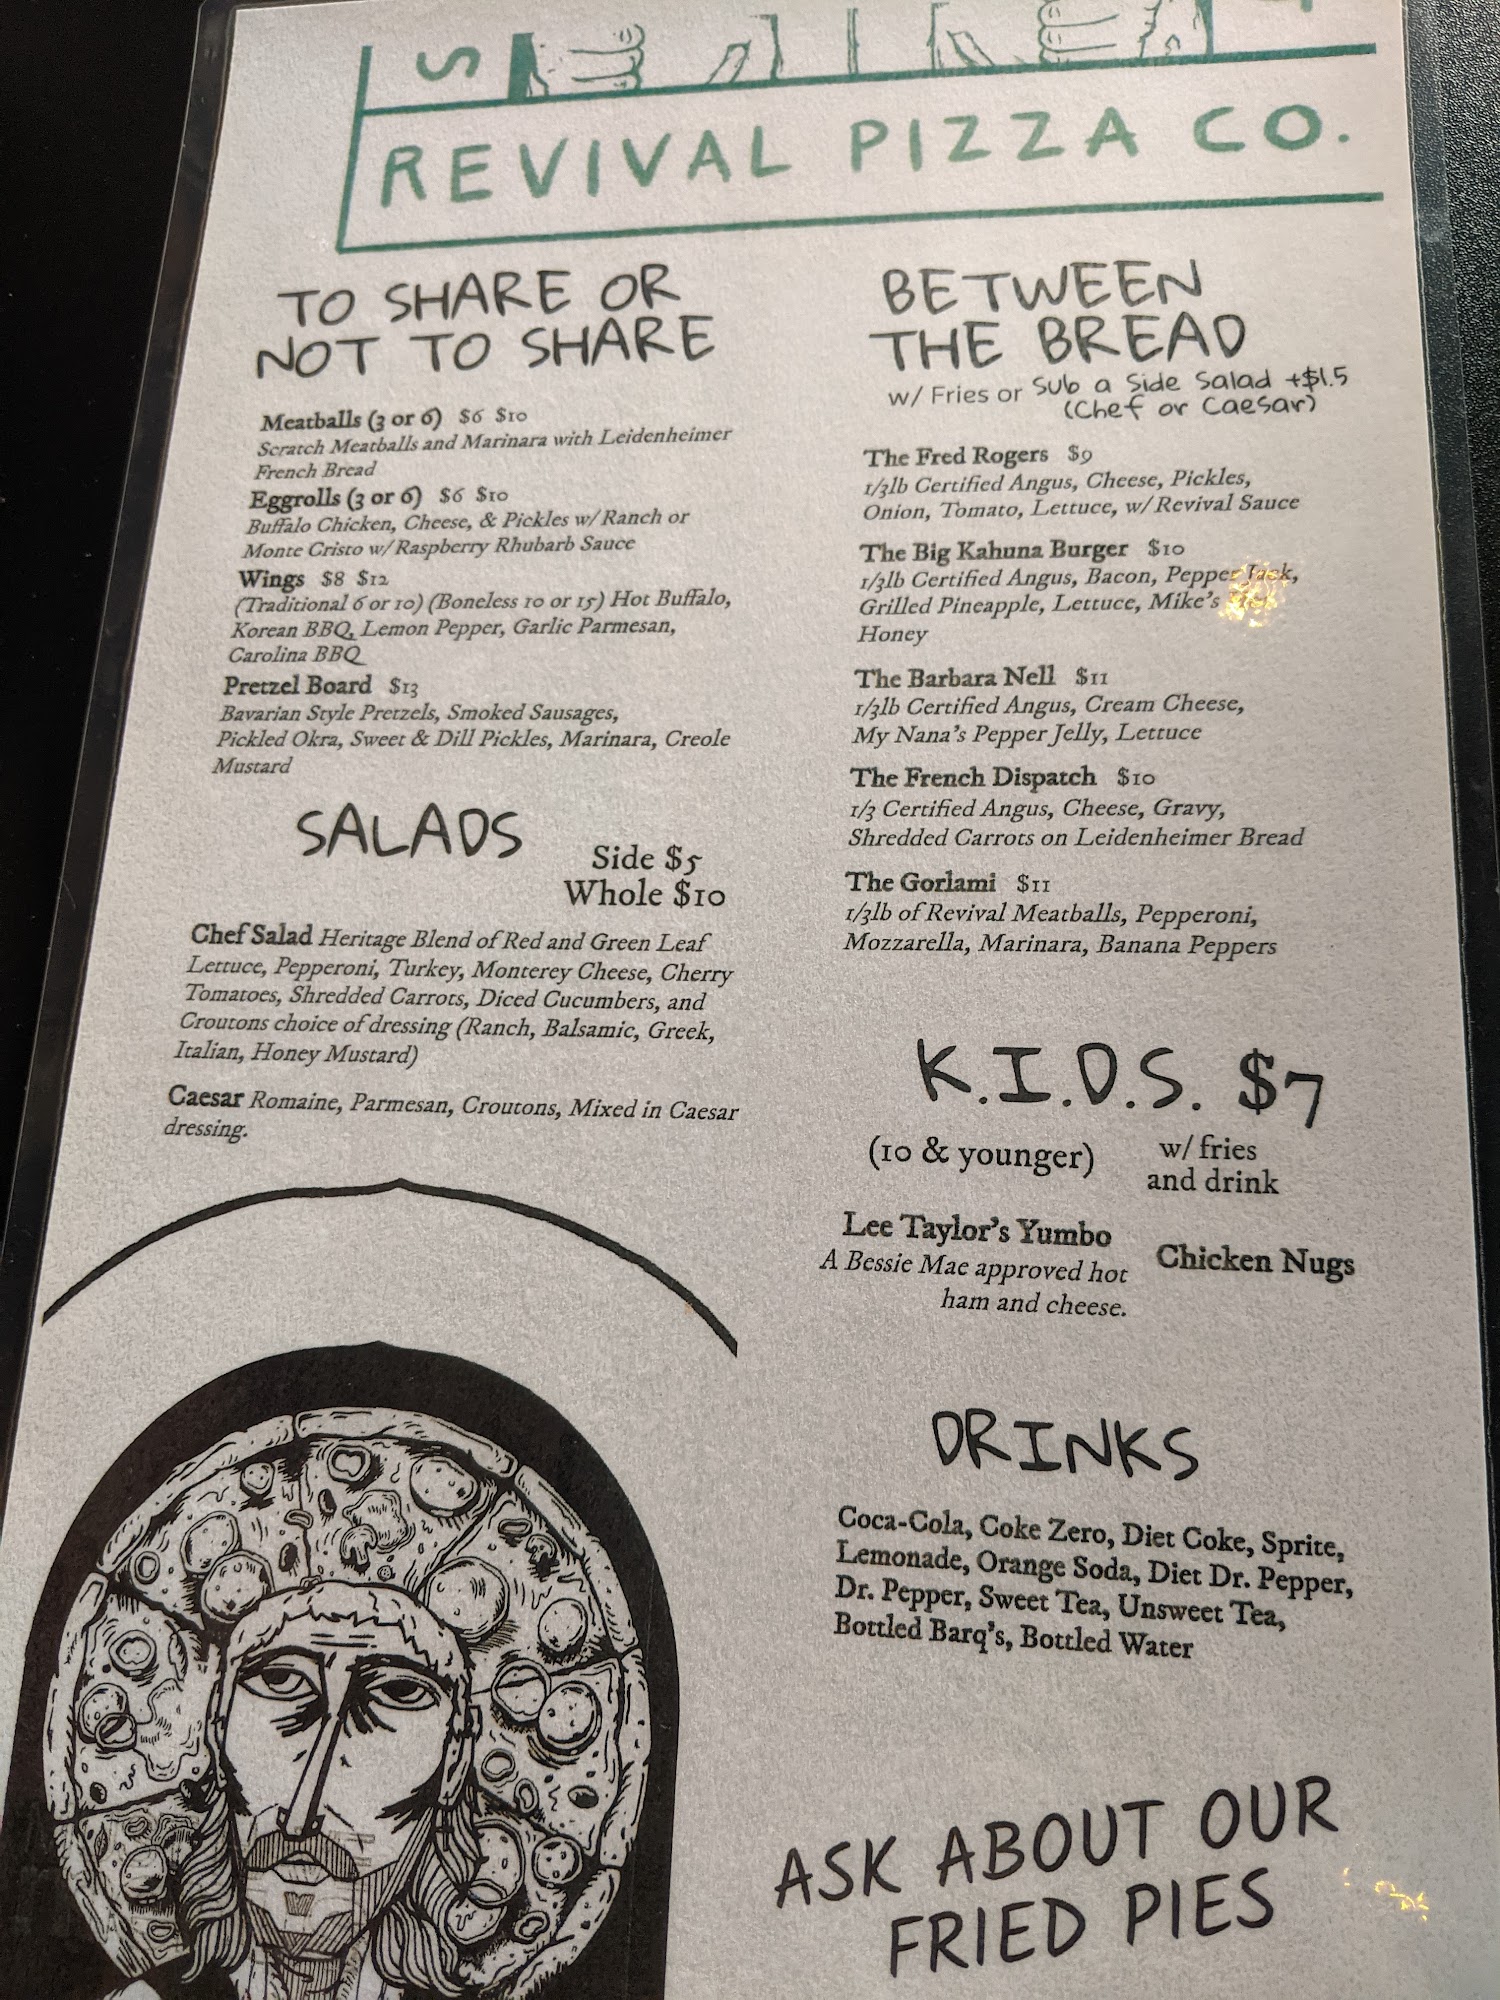 REVIVAL PIZZA CO.
TO SHARE OR
NOT TO SHARE
Meatballs (3 or 6) $6 $10
Scratch Meatballs and Marinara with Leidenheimer
French Bread
Eggrolls (3 or 6) $6 $10
Buffalo Chicken, Cheese, & Pickles w/ Ranch or
Monte Cristo w/ Raspberry Rhubarb Sauce
Wings $8 $12
(Traditional 6 or 10) (Boneless 10 or 15) Hot Buffalo,
Korean BBQ, Lemon Pepper, Garlic Parmesan,
Carolina BBQ
Pretzel Board $13
Bavarian Style Pretzels, Smoked Sausages,
Pickled Okra, Sweet & Dill Pickles, Marinara, Creole
Mustard
SALADS
Side $5
Whole $10
Chef Salad Heritage Blend of Red and Green Leaf
Lettuce, Pepperoni, Turkey, Monterey Cheese, Cherry
Tomatoes, Shredded Carrots, Diced Cucumbers, and
Croutons choice of dressing (Ranch, Balsamic, Greek,
Italian, Honey Mustard)
Caesar Romaine, Parmesan, Croutons, Mixed in Caesar
dressing.
BETWEEN
THE BREAD
w/ Fries or Sub a Side Salad +$1.5
(Chef or Caesar)
The Fred Rogers $9
1/3lb Certified Angus, Cheese, Pickles,
Onion, Tomato, Lettuce, w/ Revival Sauce
The Big Kahuna Burger $10
1/3lb Certified Angus, Bacon, Pepper Jack,
Grilled Pineapple, Lettuce, Mike's
Honey
The Barbara Nell $11
1/3lb Certified Angus, Cream Cheese,
My Nana's Pepper Jelly, Lettuce
The French Dispatch $10
1/3 Certified Angus, Cheese, Gravy,
Shredded Carrots on Leidenheimer Bread
The Gorlami $11
1/3lb of Revival Meatballs, Pepperoni,
Mozzarella, Marinara, Banana Peppers
K.I.D.S. $7
(10 & younger)
w/ fries
and drink
Lee Taylor's Yumbo
A Bessie Mae approved hot
ham and cheese.
Chicken Nugs
DRINKS
Coca-Cola, Coke Zero, Diet Coke, Sprite,
Lemonade, Orange Soda, Diet Dr. Pepper,
Dr. Pepper, Sweet Tea, Unsweet Tea,
Bottled Barq's, Bottled Water
ASK ABOUT OUR
FRIED PIES